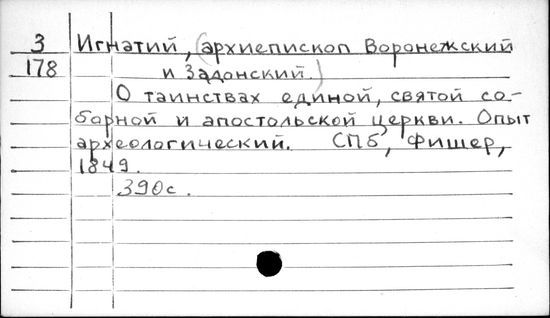 3 Игнатий, (архиепископ Воронежский
178 и Задонский.)
О таинствах единой, святой со-
борной и апостольской церкви. Опыт
археологический. СПб, Фишер,
1849.
390с.